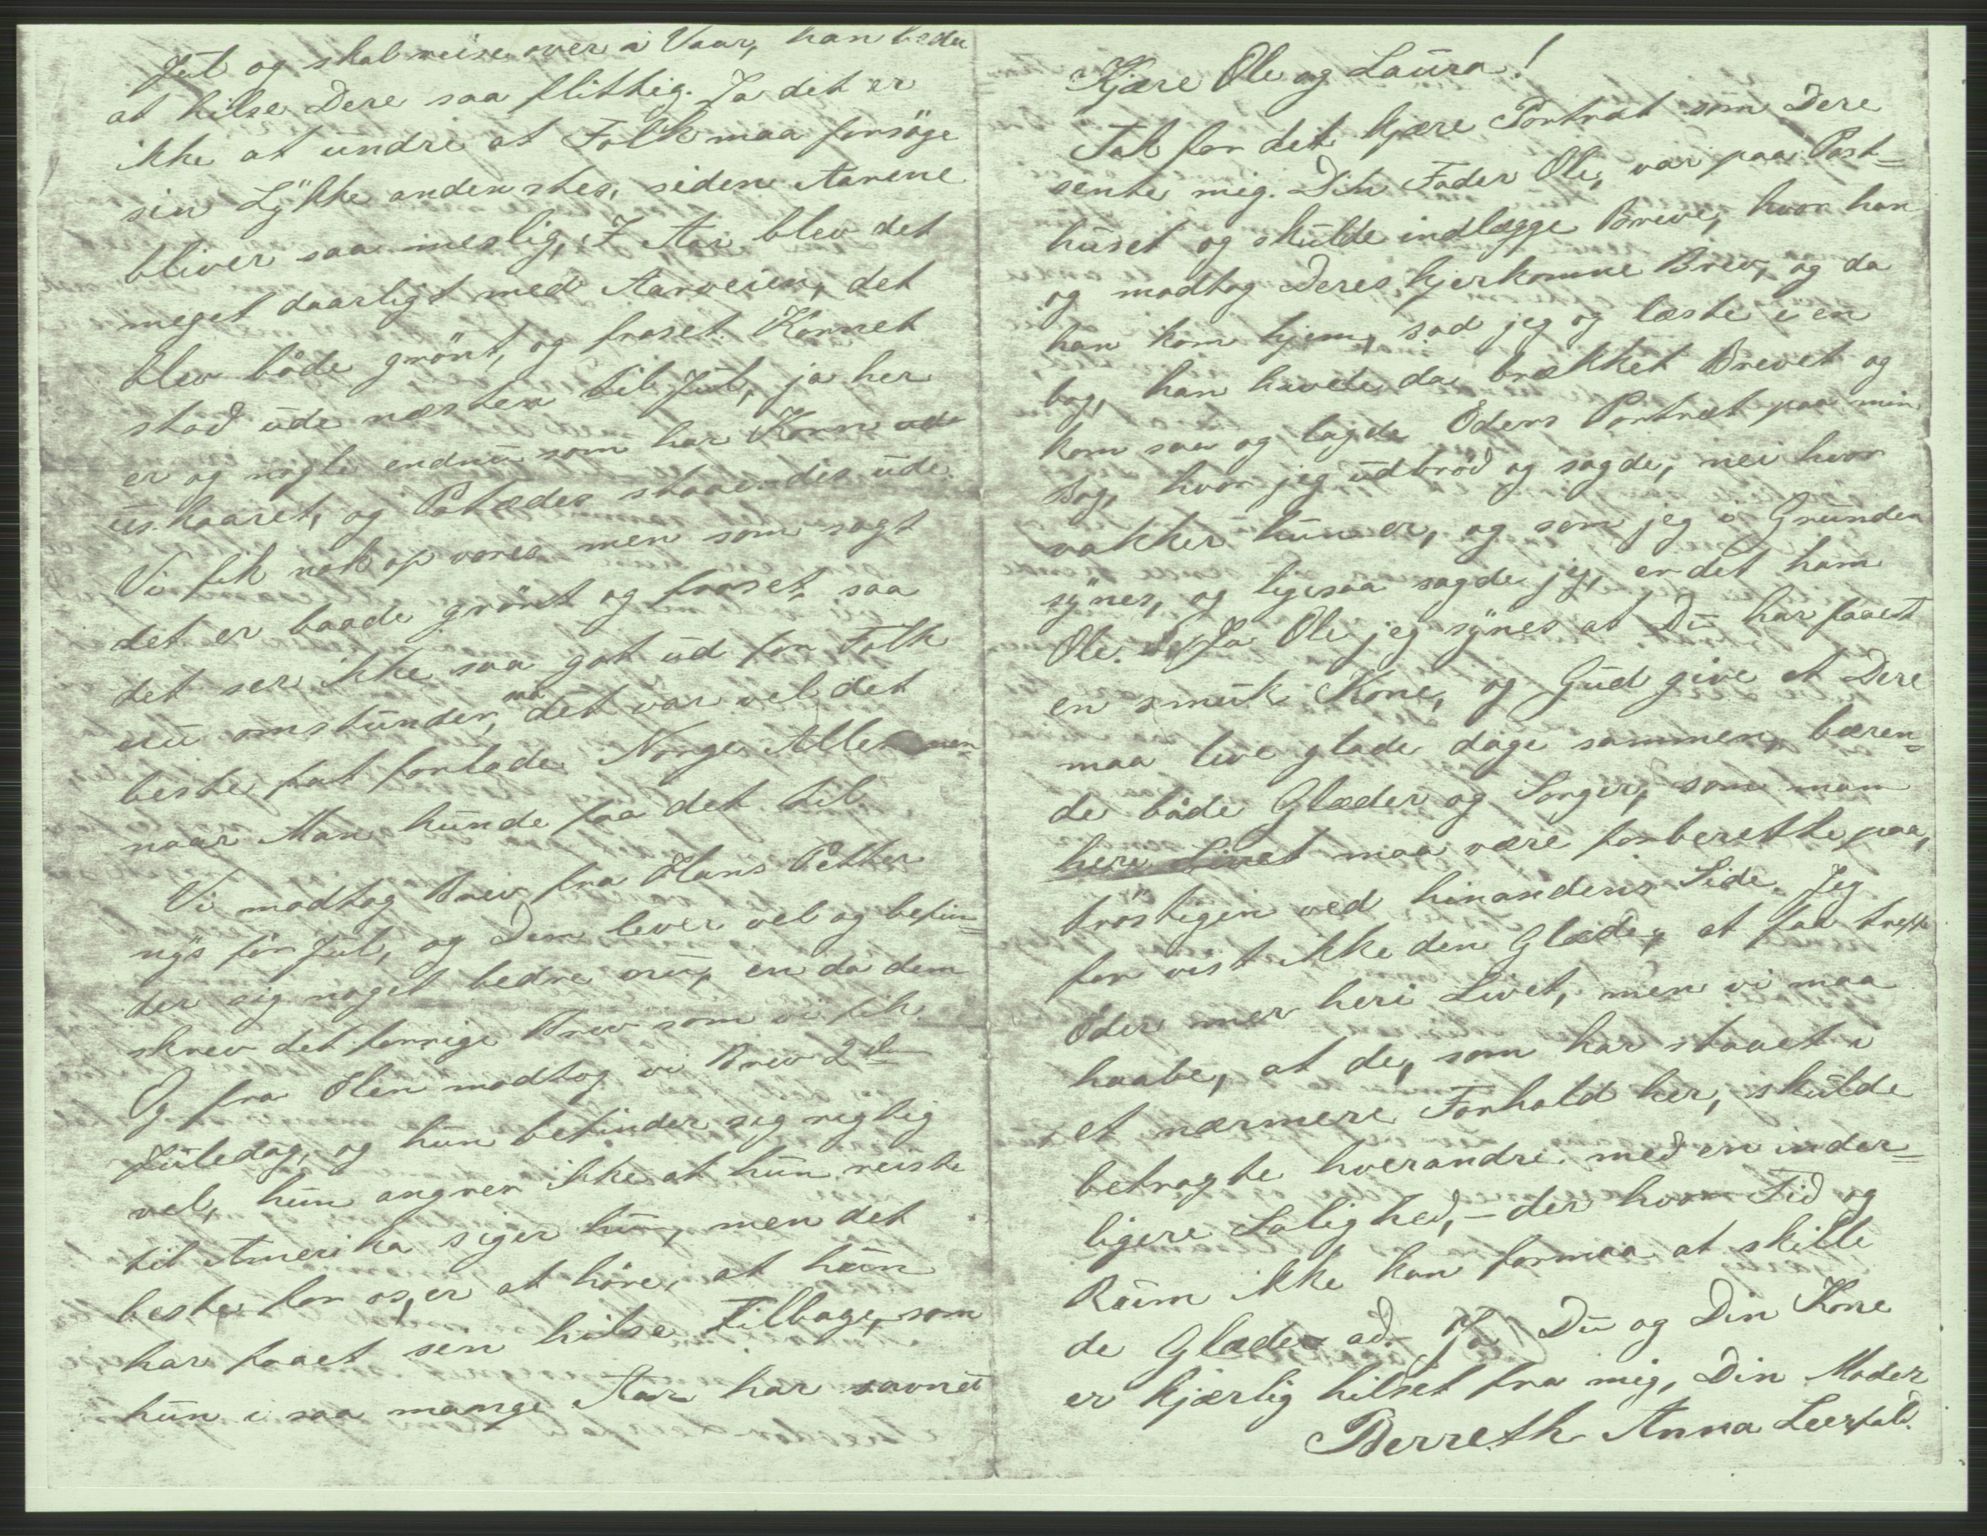 Jul og skal reise over i Vaar, han beder
at hilse Dere saa flittig. Ja det er
ikke at undre at Folk maa forsöge
sin Lykke andenstes, siden Aarene
bliver saa uneslig, I Aar blev det
meget daarligt med Aarveien, det
blev både grönt, og froset. Kornet
stod ude næsten til Jul, ja her
er og nogle endnu som har Korn
uskaaret, og Potædes staaendes ude.
Vi fik nok op vores men som sagt
det er baade grönt og froset, saa
det ser ikke saa got ud for Folk
nu omstunder, det var vel det
beste fat forlade Norge Alle men-
naar Man kunde faa det til.
Vi modtog Brev fra Hans Petter
nys för Jul, og Dem lever vel og befin-
der sig noget bedre nu, en da dem
skrev det forrige Brev som vi fik.
Og fra Elen modtog vi Brev 2den
Juledag, og hun befinder sig rigtig
vel, hun angrer ikke at hun reiste
til Amerika siger hun, men det
beste for os, er at höre, at hun
har faaet sen hilse Tilbage, som
hun i saa mange Aar har savnet
Kjære Ole og Laura!
Tak for det kjære Portræt som Dere
sente mig. Din Fader Ole, var paa Post-
huset og skulde indlægge Breve, hvor han
og modtog Deres kjerkomne Brev, og da
han kom hjem, sad jeg og læste i en
bog, han havde da brækket Brevet og
kom saa og lagde Eders Portræt, paa min
Bog, hvor jeg udbröd og sagde, nei hvor
vakker hun er, og som jeg i Grunden
synes, og ligesaa sagde jeg, er det ham
Ole. Ja Ole jeg synes at Du har faaet
en smuk Kone, og Gud give at Dere
maa leve glade dage sammen, bæren-
de både Glæder og Sorger, som man
heri Livet maa være forberette paa,
trostigen ved hinandens Side. Jeg
for vist ikke den Glæde, at faa treffe
Eder mer heri Livet, men vi maa
haabe, at de, som har staaet i
et nærmere Forhold her, skulde
betragte hverandre med en inder-
ligere Salighed, - der hvor Tid og
Rum ikke kan formaa at skille
de Glade ad. Ja Du og Din Kone
er kjærlig hilset fra mig, Din Moder
Berreth Anna Leerfald.